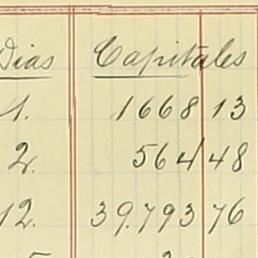 Dias Capitales
1. 1668 13
2. 564 48
12. 39.793 76